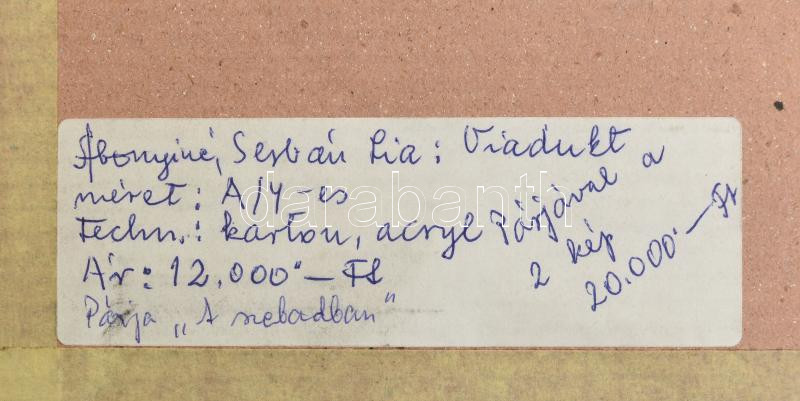 Abonyiné, Serbán Lia: Viadukt
méret: A/4-es
Techn.: karton, acryl
Ár: 12.000"—Ft
Párja „A szabadban"
Párjával a
2 kép
20.000"—Ft
darabanth